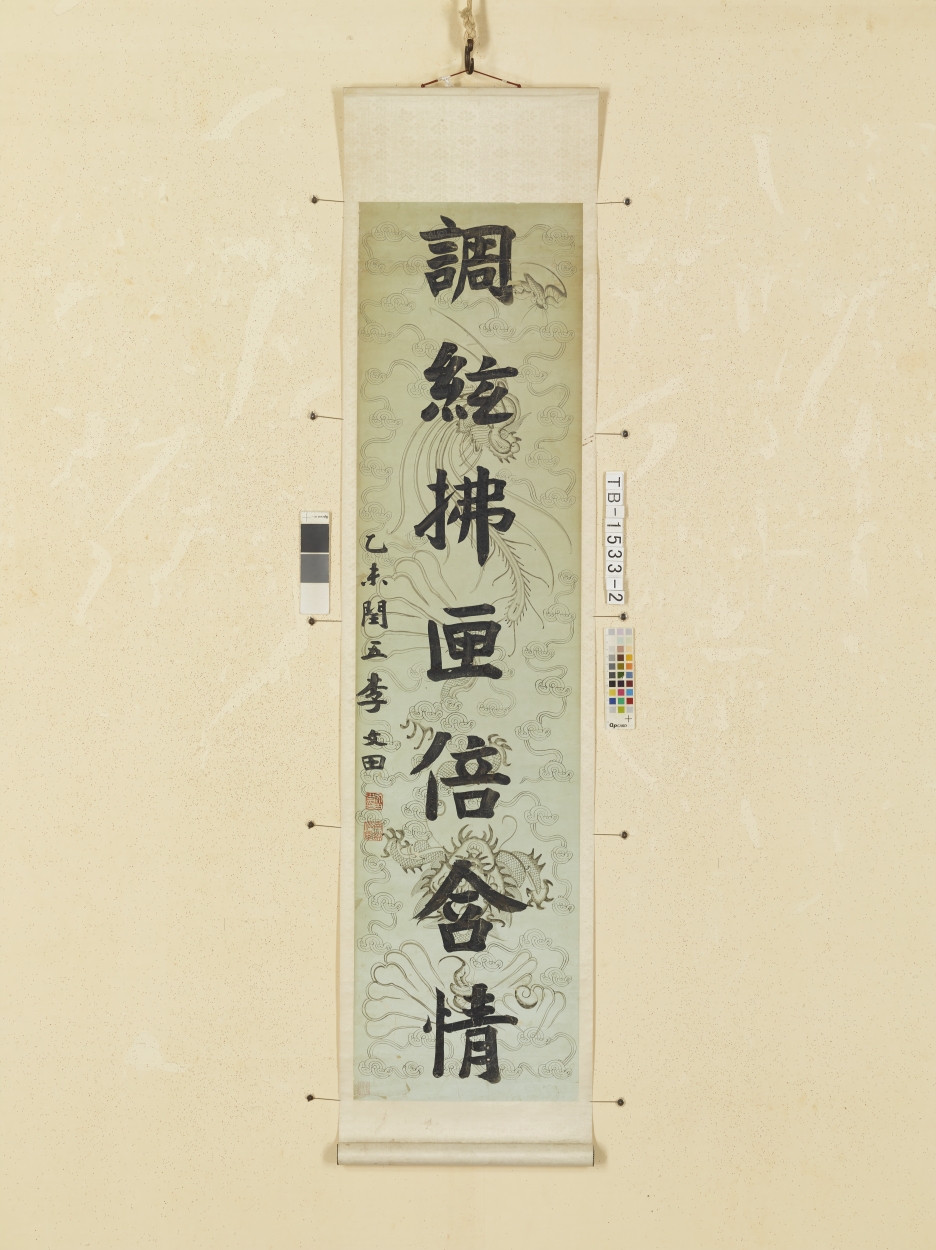 調絃拂匣倍含情
乙未閏五李文田
TB-1533-2